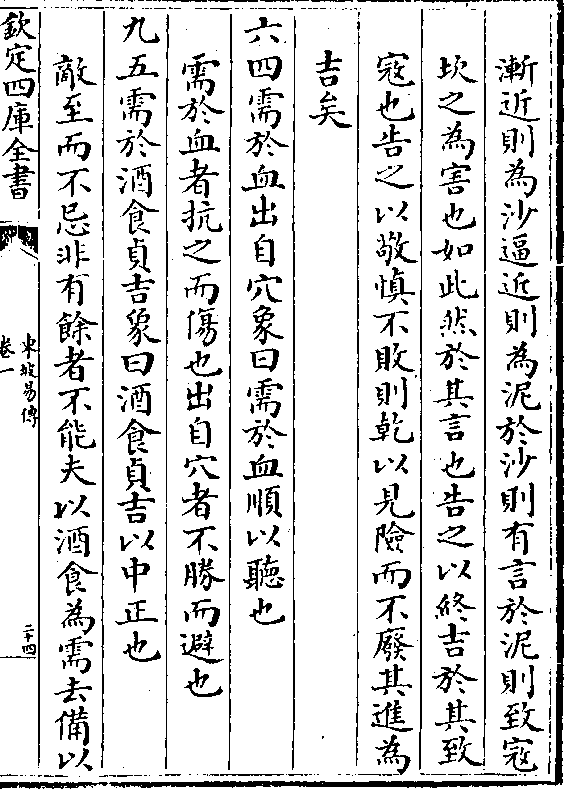 漸近則為沙逼近則為泥於沙則有言於泥則致寇
坎之為害也如此然於其言也告之以終吉於其致
寇也告之以敬慎不敗則乾以見險而不廢其進為
吉矣
六四需於血出自穴象曰需於血順以聽也
需於血者抗之而傷也出自穴者不勝而避也
九五需於酒食貞吉象曰酒食貞吉以中正也
敵至而不忌非有餘者不能夫以酒食為需去備以
欽定四庫全書
東坡易傳
卷一
二十四